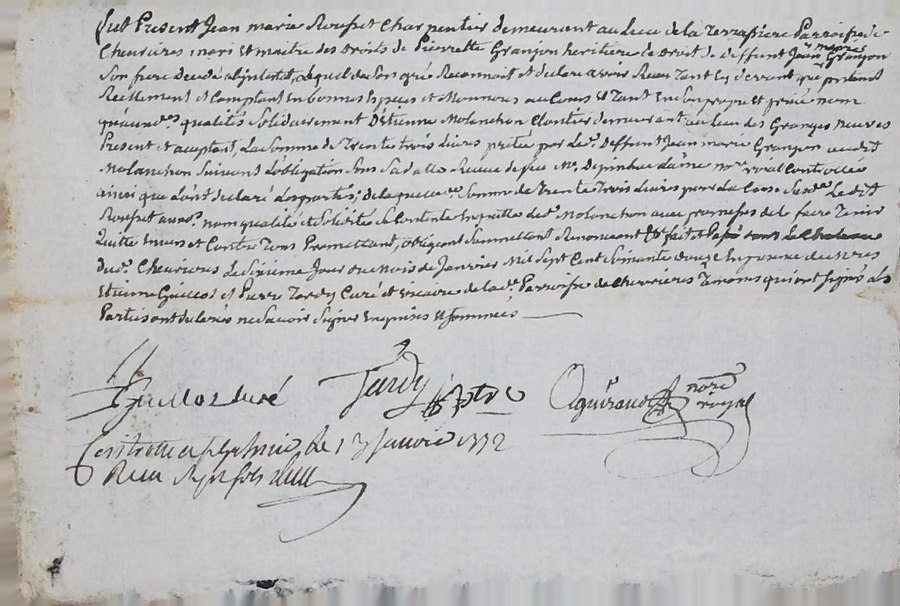 fut Present Jean marie Rousset Charpentier demeurant au Lieu de la Terrassiere Parroisse de
Chevrieres, mari et maitre des droits de Pierrette Granjon heritiere de droit de deffunt Jean marie Granjon
Son frere decedé abjntestat, lequel de Son gré Reconnoit et declare avoir Reçu tant cy devant que presentement
Reellement et Comptant en bonnes Especes et Monnoies au Cours et tant en Son propre et privé nom
qu'aux des. qualités Solidairement d'Etienne Molanchon Clontier demeurant au Lieu des Granges Neuves
Present et aceptant, La Somme de Trente trois Livres pretée par led. deffunt Jean marie Granjon audit
Molanchon Suivant L'obligation Sous Sa datte Reçue de feu Me. Depinhac Laîné nore. royal Controllée
ainsi que L'ont declaré Les parties; de laquelle de. Somme de Trente Trois Livres pour La Cause Susde. Ledit
Rousset aux ds. nom qualité et Solidité Se Contente et quitte led. Molanchon avec promesses de le faire Tenir
Quitte Envers et Contre Tous Promettant, obligeant Soumettant Renonceant fait et Passé sous le Chateau
dud. Chevrieres Le Sixieme Jour du Mois de Janvier Mil Sept Cent Soixante douze En presence de sieurs
Etienne Guillos et Pierre Tardy Curé et vicaire de lade. Parroisse de Chevrieres Temoins qui ont Signé Les
Parties ont declarés ne Savoir Signer Enquises et Sommées
Guillos Curé Tardy ptre nore royal
Controllé a St Galmier Le 13 Janvier 1772
Reçu